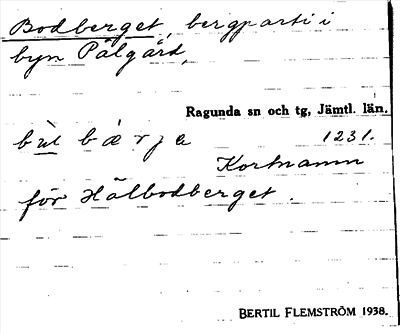 Bodberget, bergparti i
byn Pålgård,
Ragunda sn och tg, Jämtl. län.
1231.
Kortnamn
för Hälbodberget.
BERTIL FLEMSTRÖM 1938.